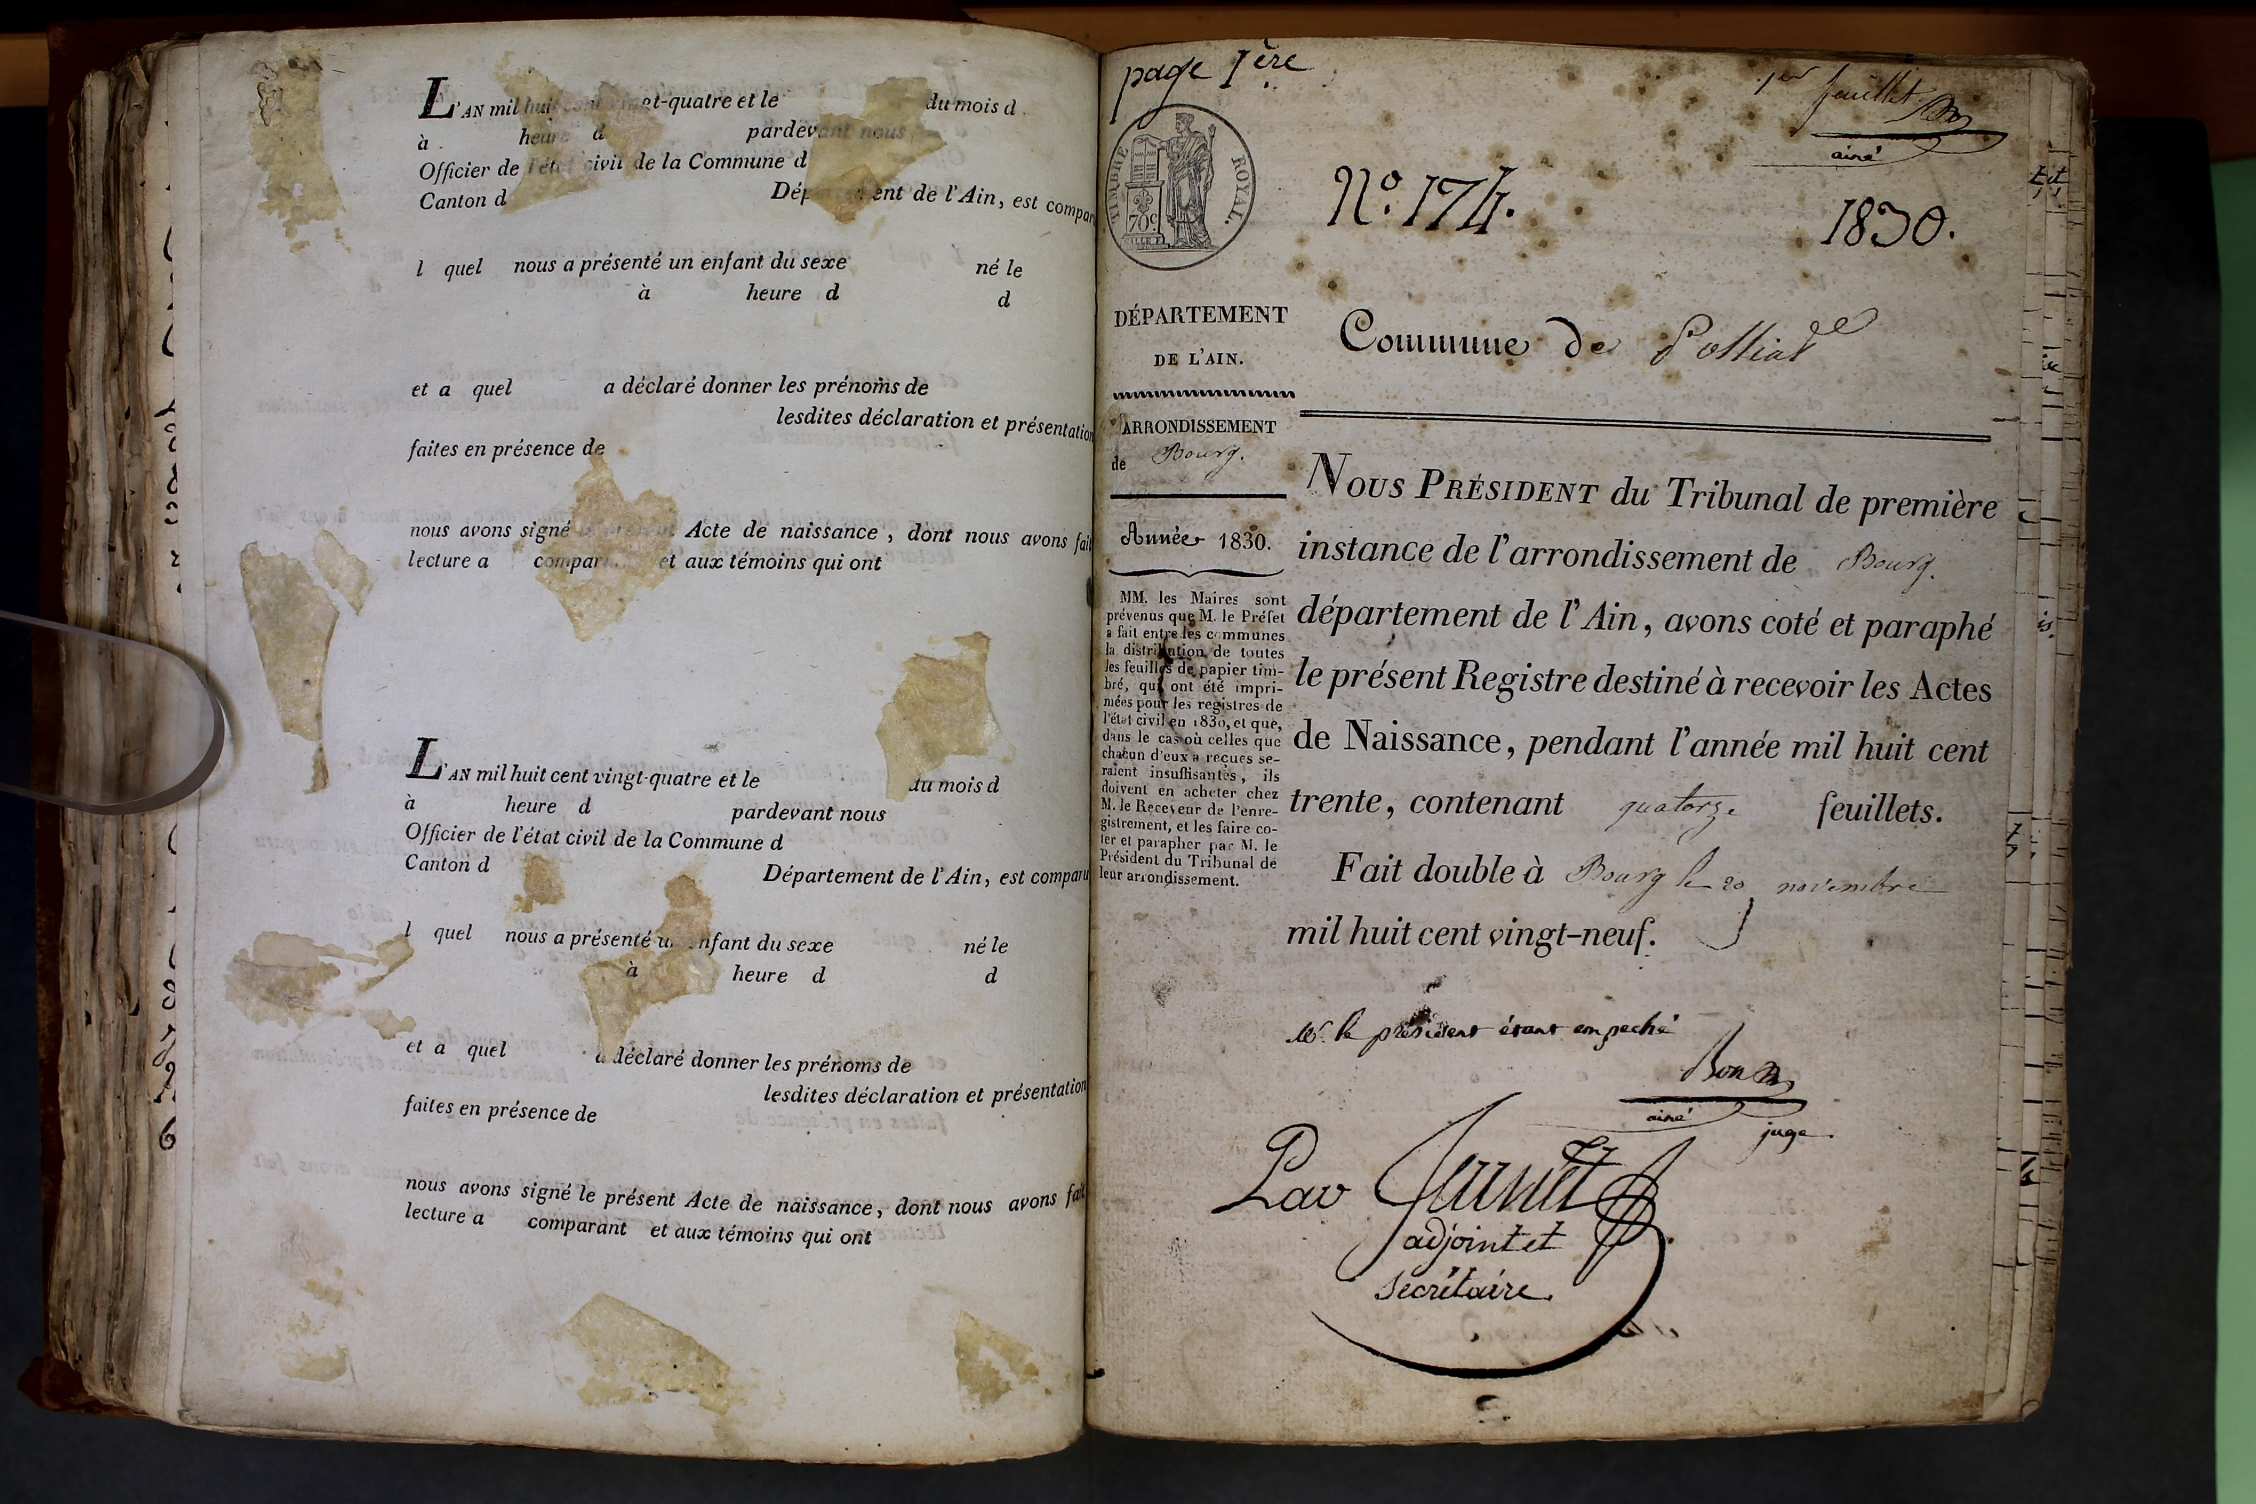 L'AN mil huit cent vingt-quatre et le du mois d
à heure d pardevant nous
Officier de l'état civil de la Commune d
Canton d Département de l'Ain, est compar
l quel nous a présenté un enfant du sexe né le
à heure d d
et a quel a déclaré donner les prénoms de
lesdites déclaration et présentation
faites en présence de
nous avons signé le présent Acte de naissance, dont nous avons fait
lecture a comparant et aux témoins qui ont
L'AN mil huit cent vingt-quatre et le du mois d
à heure d pardevant nous
Officier de l'état civil de la Commune d
Canton d Département de l'Ain, est comparu
l quel nous a présenté un enfant du sexe né le
à heure d d
et a quel a déclaré donner les prénoms de
lesdites déclaration et présentation
faites en présence de
nous avons signé le présent Acte de naissance, dont nous avons fait
lecture a comparant et aux témoins qui ont
page 1ère
1er feuillet
ainé
TIMBRE ROYAL.
70c
N.º 174. 1830.
DÉPARTEMENT
DE L'AIN.
Commune de Polliat
ARRONDISSEMENT
de Bourg.
Année 1830.
MM. les Maires sont
prévenus que M. le Préfet
a fait entre les communes
la distribution de toutes
les feuilles de papier tim-
bré, qui ont été impri-
mées pour les registres de
l'état civil en 1830, et que,
dans le cas où celles que
chacun d'eux a reçues se-
raient insuffisantes, ils
doivent en acheter chez
M. le Receveur de l'enre-
gistrement, et les faire co-
ter et parapher par M. le
Président du Tribunal de
leur arrondissement.
NOUS PRÉSIDENT du Tribunal de première
instance de l'arrondissement de Bourg.
département de l'Ain, avons coté et paraphé
le présent Registre destiné à recevoir les Actes
de Naissance, pendant l'année mil huit cent
trente, contenant quatorze feuillets.
Fait double à Bourg le 20 novembre
mil huit cent vingt-neuf.
Mr. le président étant empeché
ainé juge.
Par
adjoint et
secrétaire.